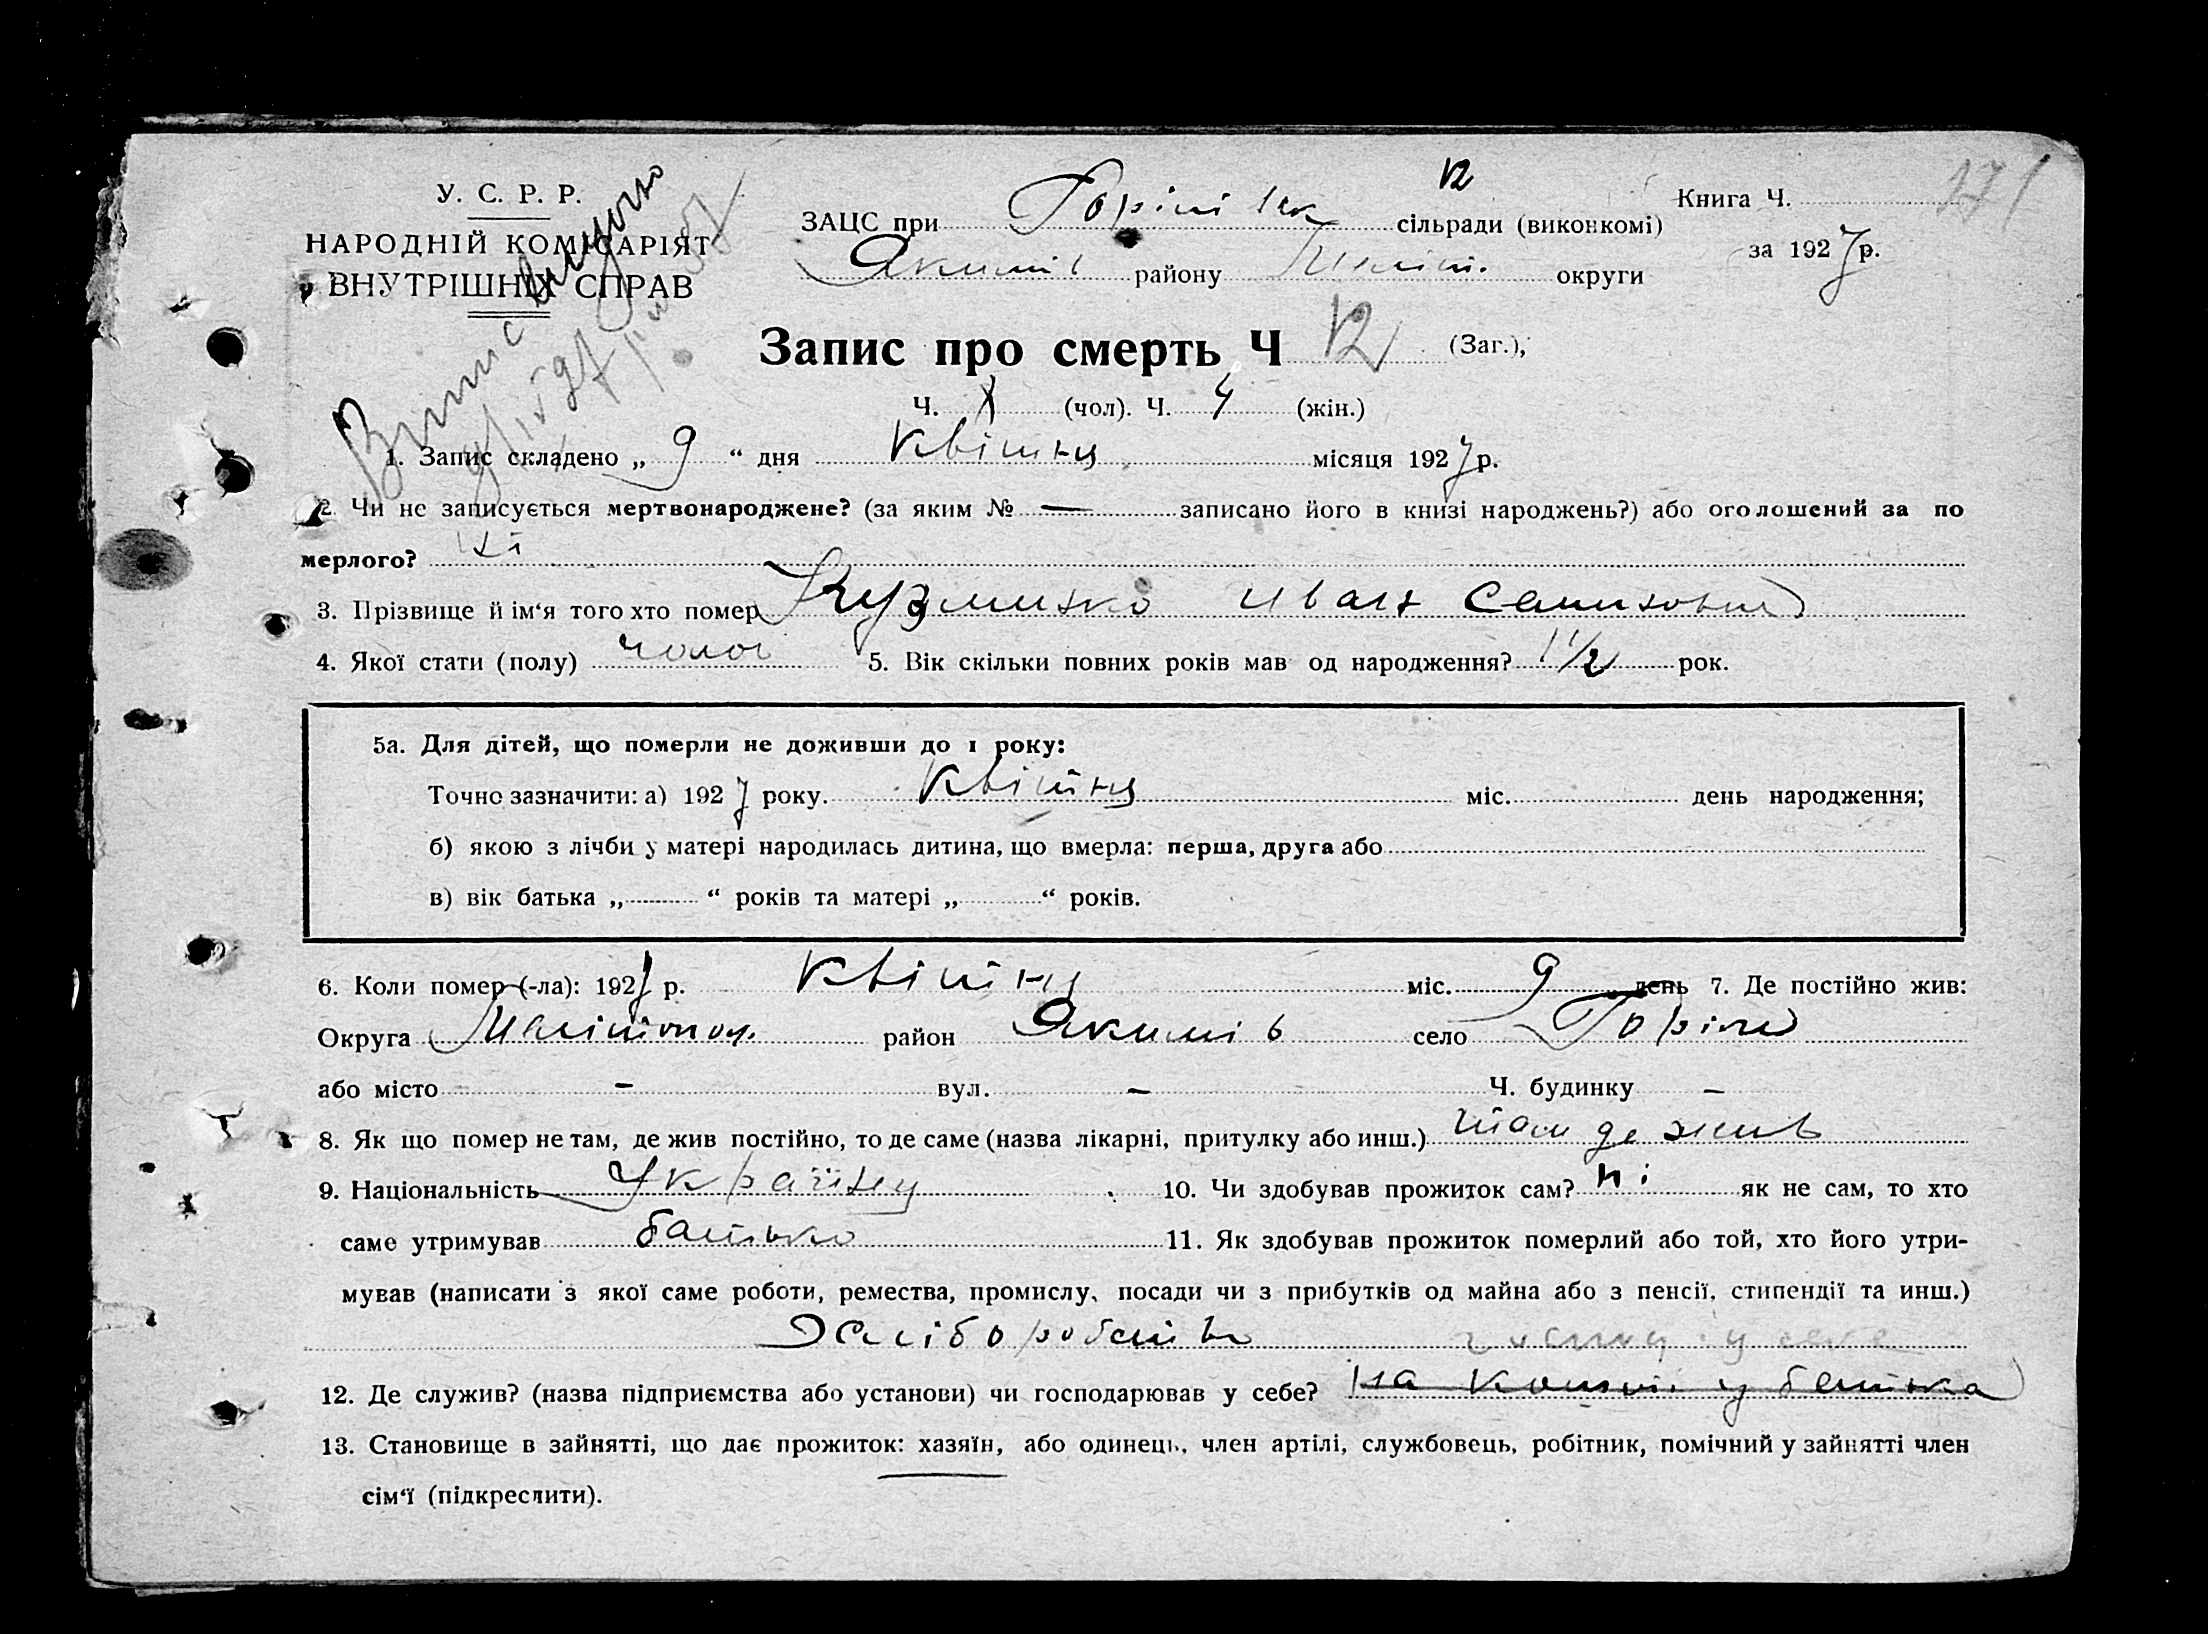 У. С. Р. Р.
НАРОДНІЙ КОМІСАРІЯТ
ВНУТРІШНІХ СПРАВ
Випис видано
12
171
ЗАЦС при сільради (виконкомі)
Книга Ч.
Якимів району Меліт. округи
за 1927 р.
Запис про смерть Ч 12 (Заг.),
Ч. (чол). Ч. 4 (жін.)
1. Запис складено „ 9 “ дня Квітня місяця 1927 р.
2. Чи не записується мертвонароджене? (за яким № — записано його в книзі народжень?) або оголошений за по
мерлого? ні
3. Прізвище й ім‘я того хто помер Кузменко Иван
4. Якої стати (полу) чолов 5. Вік скільки повних років мав од народження? 1 1/2 рок.
5а. Для дітей, що померли не доживши до 1 року:
Точно зазначити: а) 1927 року. Квітня міс. день народження;
б) якою з лічби у матері народилась дитина, що вмерла: перша, друга або
в) вік батька „ “ років та матері „ “ років.
6. Коли помер (-ла): 1927 р. Квітня міс. 9 день 7. Де постійно жив:
Округа Мелітопол. район Якимів село
або місто – вул. – Ч. будинку –
8. Як що помер не там, де жив постійно, то де саме (назва лікарні, притулку або инш.) там де жив
9. Національність Українц 10. Чи здобував прожиток сам? ні як не сам, то хто
саме утримував батько 11. Як здобував прожиток померлий або той, хто його утри-
мував (написати з якої саме роботи, ремества, промислу, посади чи з прибутків од майна або з пенсії, стипендії та инш.)
Хліборобство
12. Де служив? (назва підприємства або установи) чи господарював у себе? на кошті у батька
13. Становище в зайнятті, що дає прожиток: хазяїн, або одинець, член артілі, службовець, робітник, помічний у зайнятті член
сім‘ї (підкреслити).